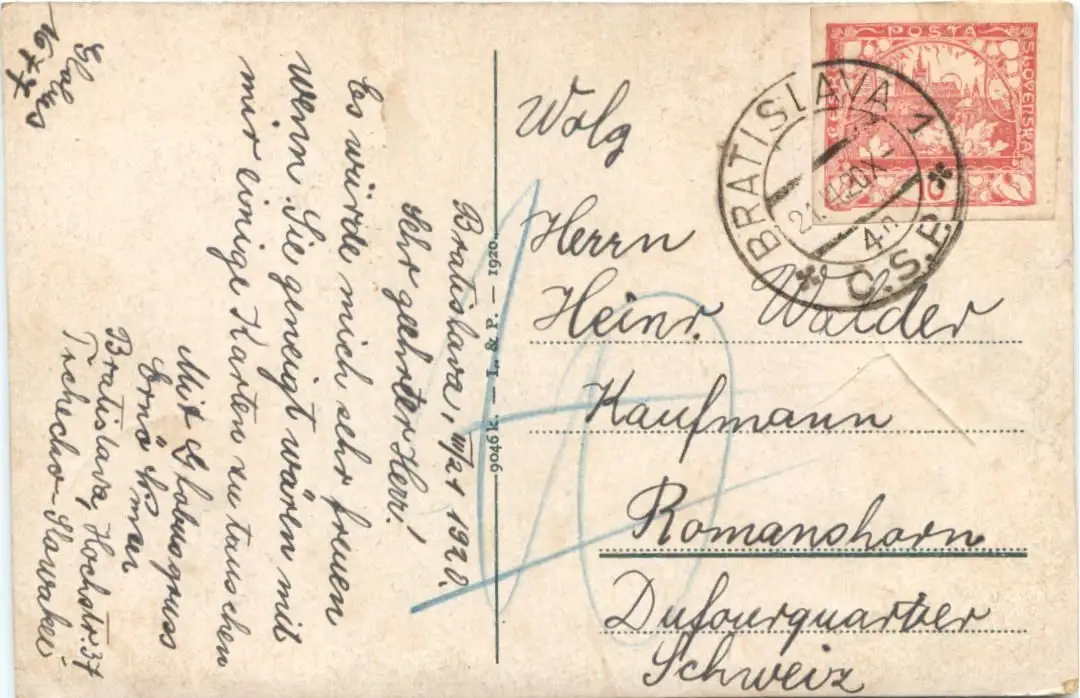 Globus
Bratislava, III/21 1920.
Sehr geehrter Herr!
Es würde mich sehr freuen
wenn Sie geneigt wären mit
mir einige Karten zu tauschen
Mit Globusgruss
Ernö
Bratislava, Hochstr. 37
Tschecho-Slowakei
9046 k. — L. & P. — 1920.
Wolg
Herrn
Heinr. Walder
Kaufmann
Romanshorn
Dufourquartier
Schweiz
POSTA
ČESKO
SLOVENSKÁ
10
BRATISLAVA 1
20.X
Č.S.P.
10